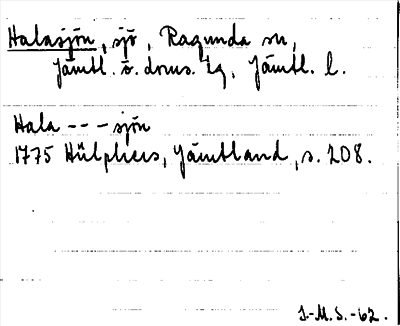 Halasjön, sjö, Ragunda sn,
Jämtl. ö. doms. tg, Jämtl. l.
Hala - - - sjön
1775 Hülphers, Jämtland, s. 208.
I.-M. S. -62.